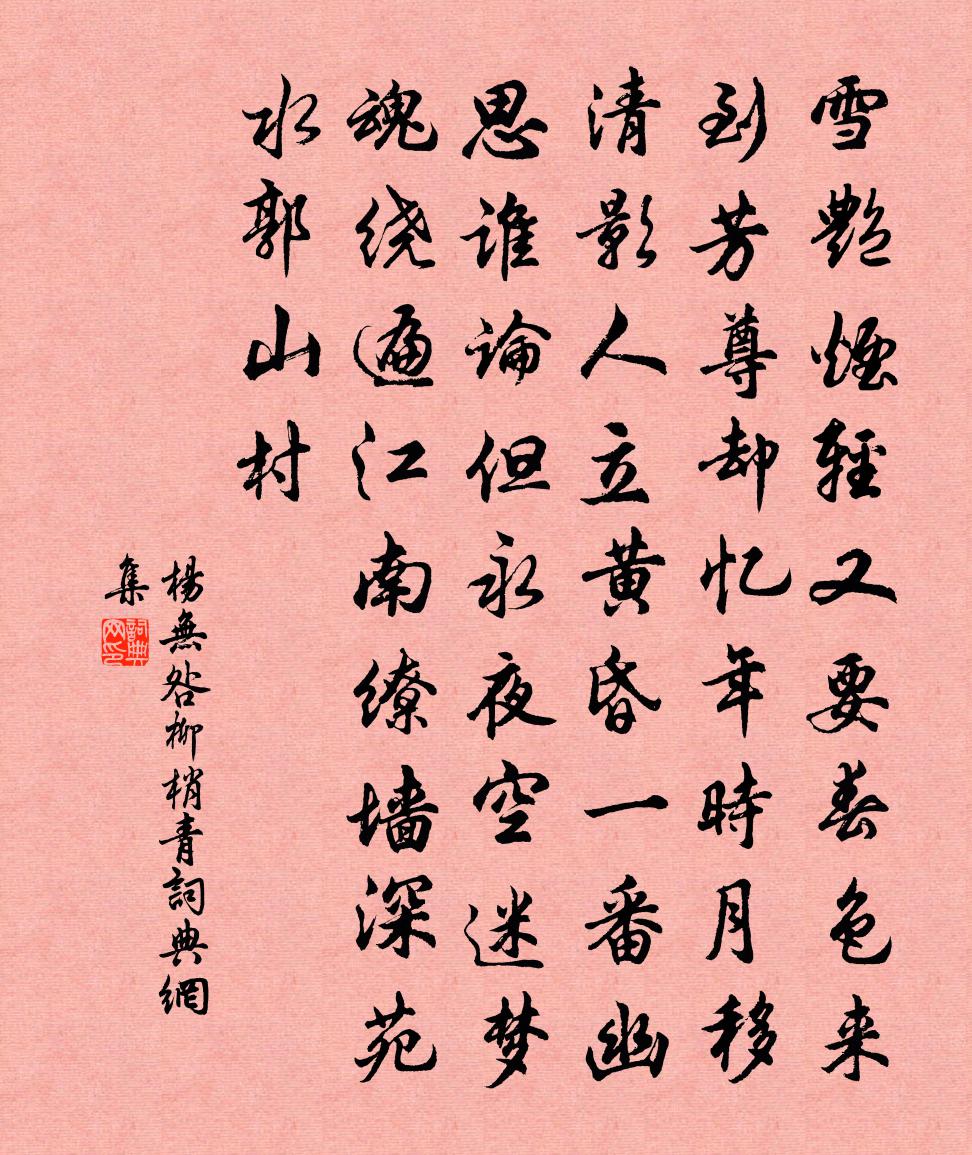 雪艷煙輕又要春色来
到芳尊却忆年時月移
清影人立黄昏一番幽
思誰論但永夜空迷梦
魂绕遍江南缭墙深苑
水郭山村
楊無咎柳梢青詞典網
集
詞典网印